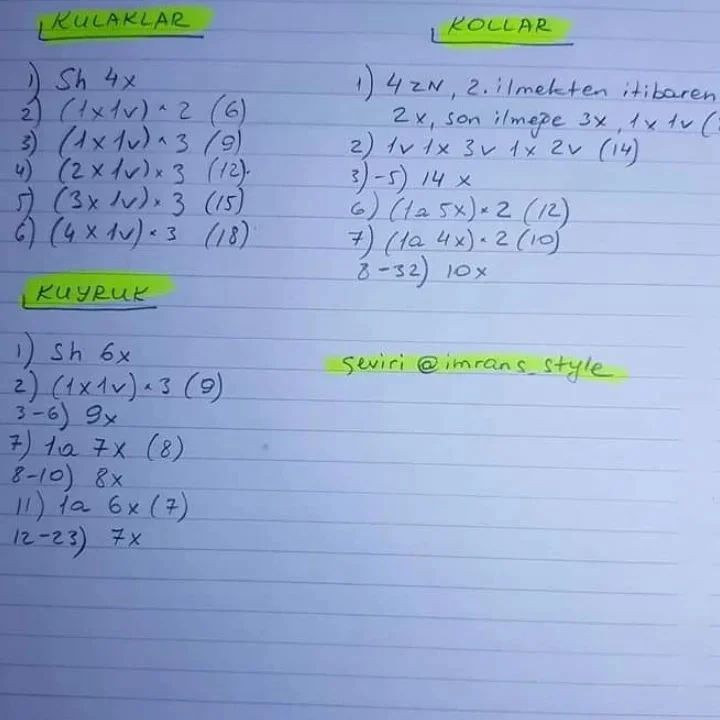 KULAKLAR
1) Sh 4x
2) (1x1v) * 2 (6)
3) (1x1v) * 3 (9)
4) (2x1v) * 3 (12)
5) (3x1v) * 3 (15)
6) (4x1v) * 3 (18)
KUYRUK
1) Sh 6x
2) (1x1v) * 3 (9)
3-6) 9x
7) 1a 7x (8)
8-10) 8x
11) 1a 6x (7)
12-23) 7x
KOLLAR
1) 4 ZN, 2. ilmekten itibaren
2x, son ilmeğe 3x, 1x1v (
2) 1v 1x 3v 1x 2v (14)
3)-5) 14x
6) (1a 5x) * 2 (12)
7) (1a 4x) * 2 (10)
8-32) 10x
Çeviri @imrans_style